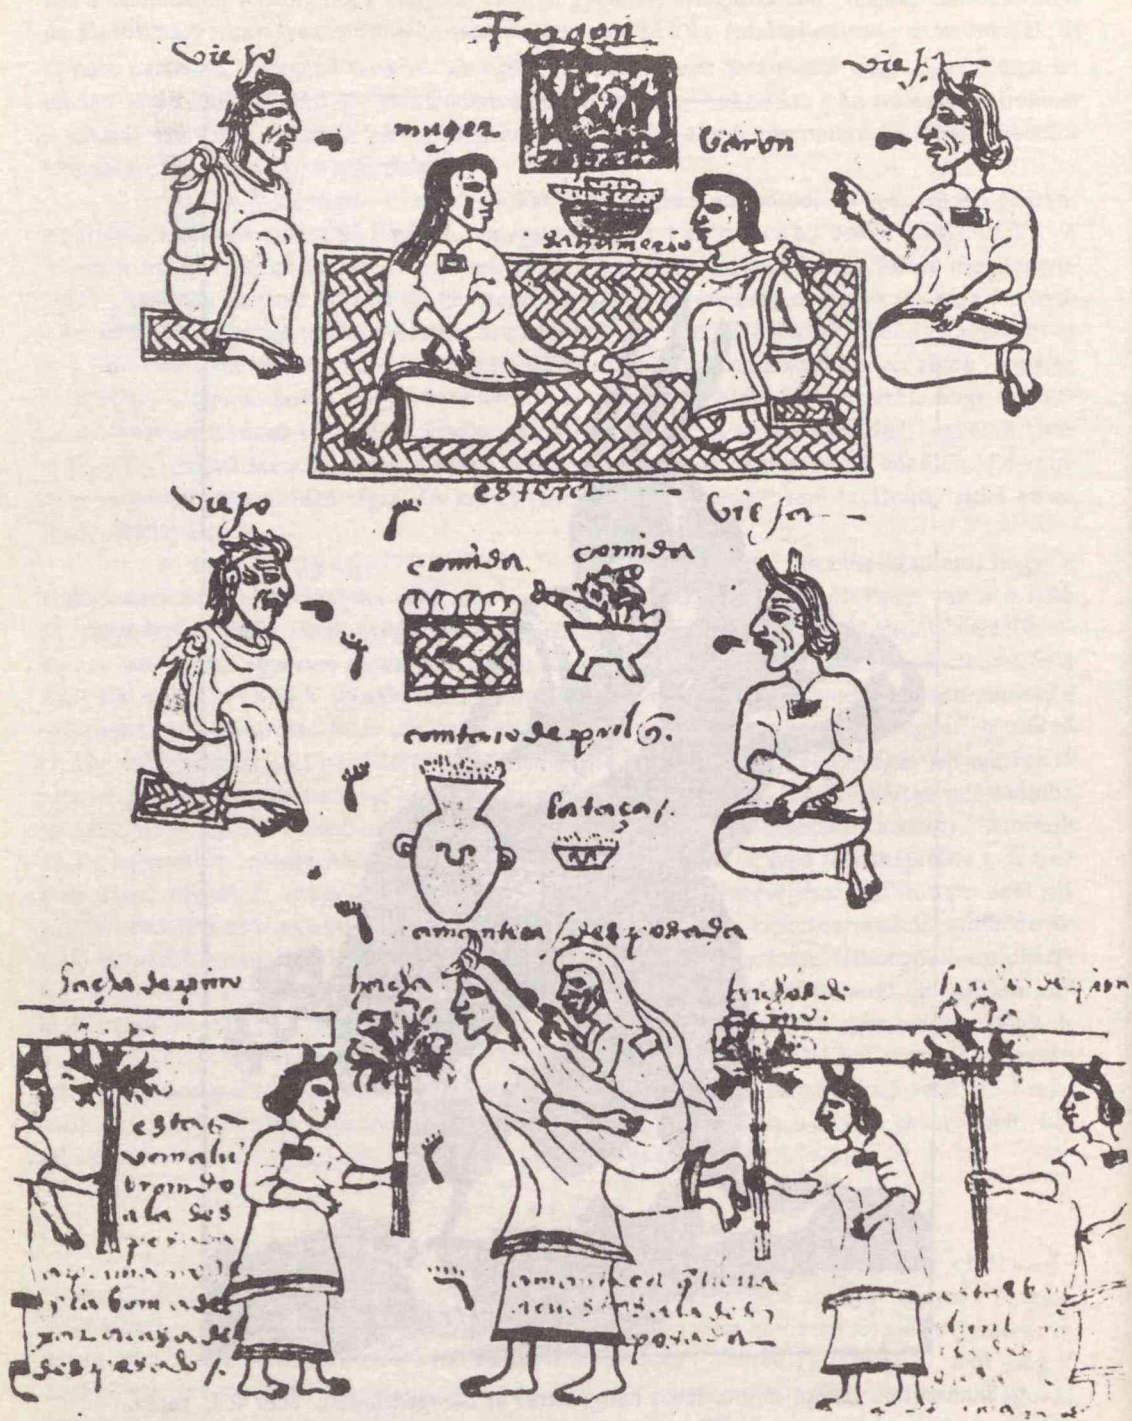 fugon
viejo
vieja
muger
varon
sahumerio
estera
viejo
vieja
comida
comida
cantaro de pulq̄.
la taça /.
amanteca / desposada
hacha de pino
hacha
hachos de
pino.
hachos de pino
estas
van alu
brando
a la des
posada
la prima no
y la toma de
par casa del
desposado /.
amanteca q̄ lleva
acuestas a la des
posada